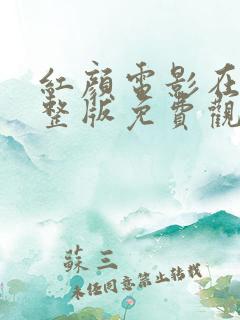 紅顏電影在
整版免費觀
蘇三
未經同意禁止轉載